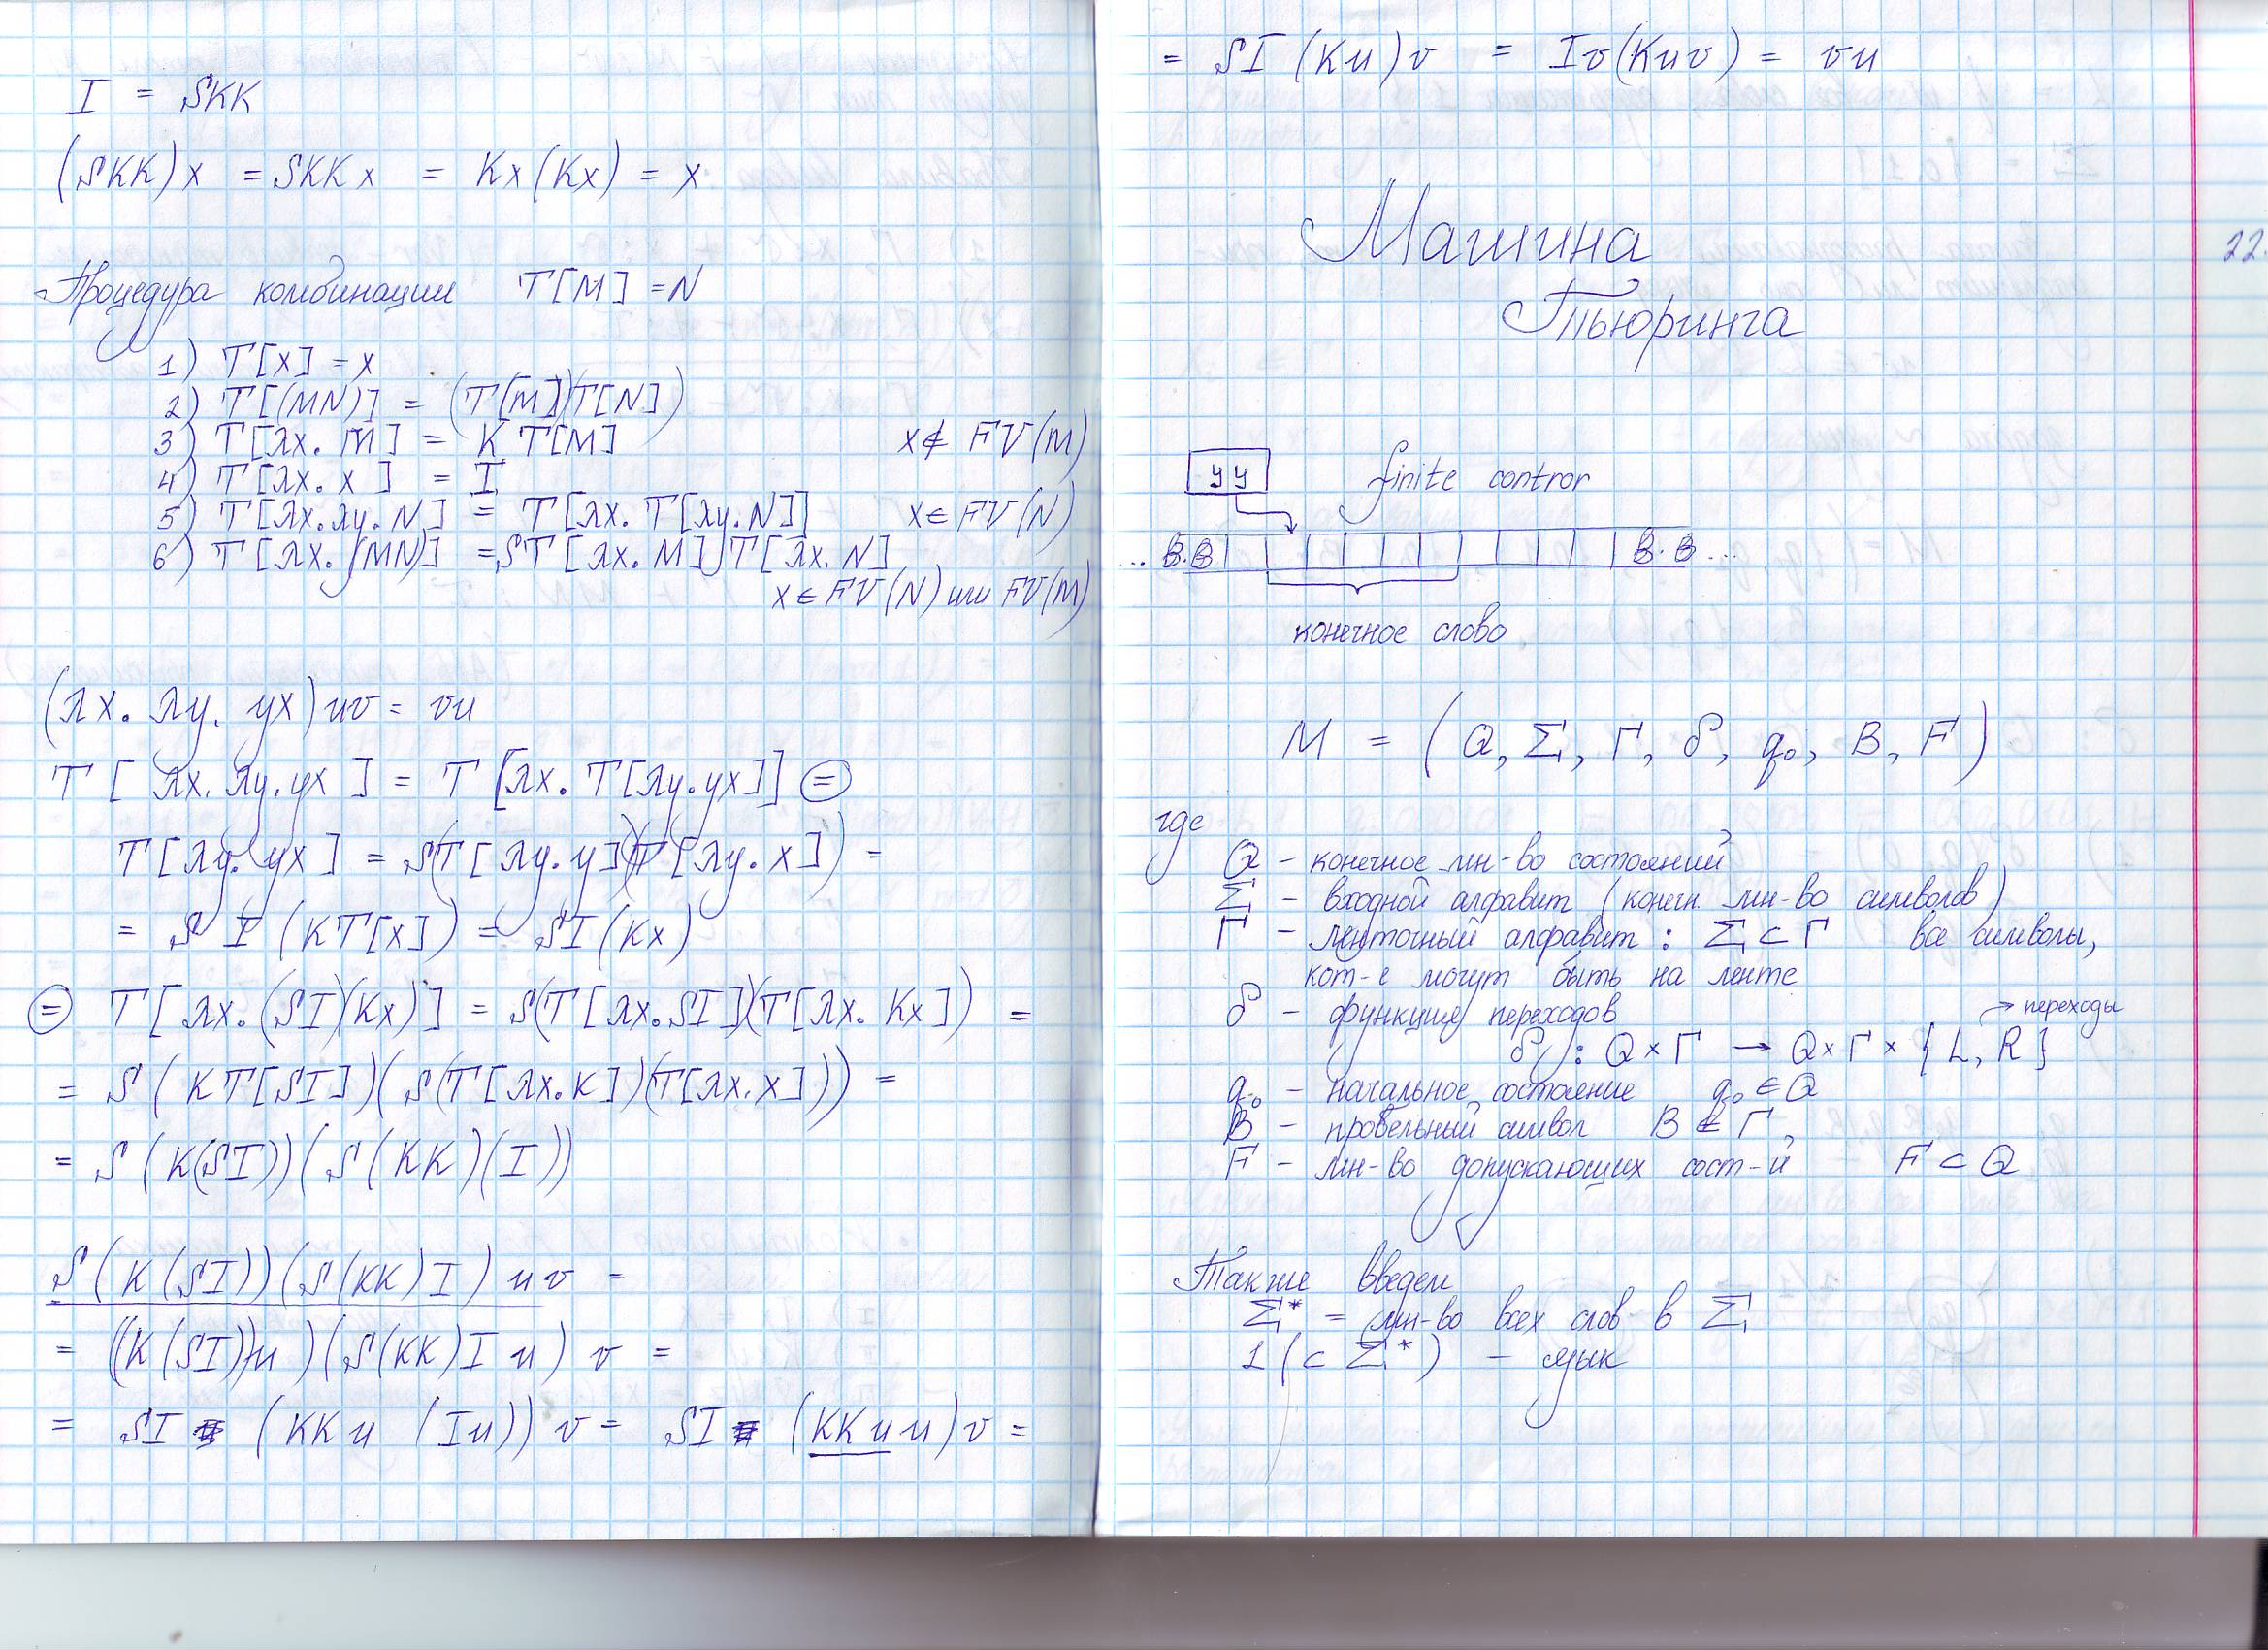 I = SKK
(SKK)x = SKKx = Kx(Kx) = x
Процедура комбинации T[M] = N
1) T[x] = x
2) T[(MN)] = (T[M])(T[N])
3) T[λx. M] = K T[M] x∉FV(M)
4) T[λx. x] = I
5) T[λx.λy.N] = T[λx. T[λy.N]] x∈FV(N)
6) T[λx.(MN)] = ST[λx.M]T[λx.N]
x∈FV(N) или FV(M)
(λx. λy. yx)uv = vu
T[λx.λy.yx] = T[λx. T[λy.yx]] =
T[λy. yx] = S(T[λy.y])(T[λy.x]) =
= S I (KT[x]) = SI(Kx)
= T[λx.(SI)(Kx)] = S(T[λx.SI])(T[λx. Kx]) =
= S(KT[SI])(S(T[λx.K])(T[λx.x])) =
= S(K(SI))(S(KK)(I))
S(K(SI))(S(KK)I)uv =
= ((K(SI))u)(S(KK)I u) v =
= SI (KKu (Iu)) v = SI (KKuu)v =
= SI(Ku)v = Iv(Kuv) = vu
Машина
Тьюринга
22.
УУ finite contror
... B.B B.B ...
конечное слово
M = (Q, Σ, Γ, δ, q₀, B, F)
где
Q - конечное мн-во состояний
Σ - входной алфавит (конечн. мн-во символов)
Γ - ленточный алфавит : Σ⊂Γ все символы,
кот-е могут быть на ленте
δ - функция переходов → переходы
δ : Q×Γ → Q×Γ×{L, R}
q₀ - начальное состояние q₀∈Q
B - пробельный символ B∈Γ,
F - мн-во допускающих сост-й F⊂Q
Также введем
Σ* = мн-во всех слов в Σ
L(⊂Σ*) - язык